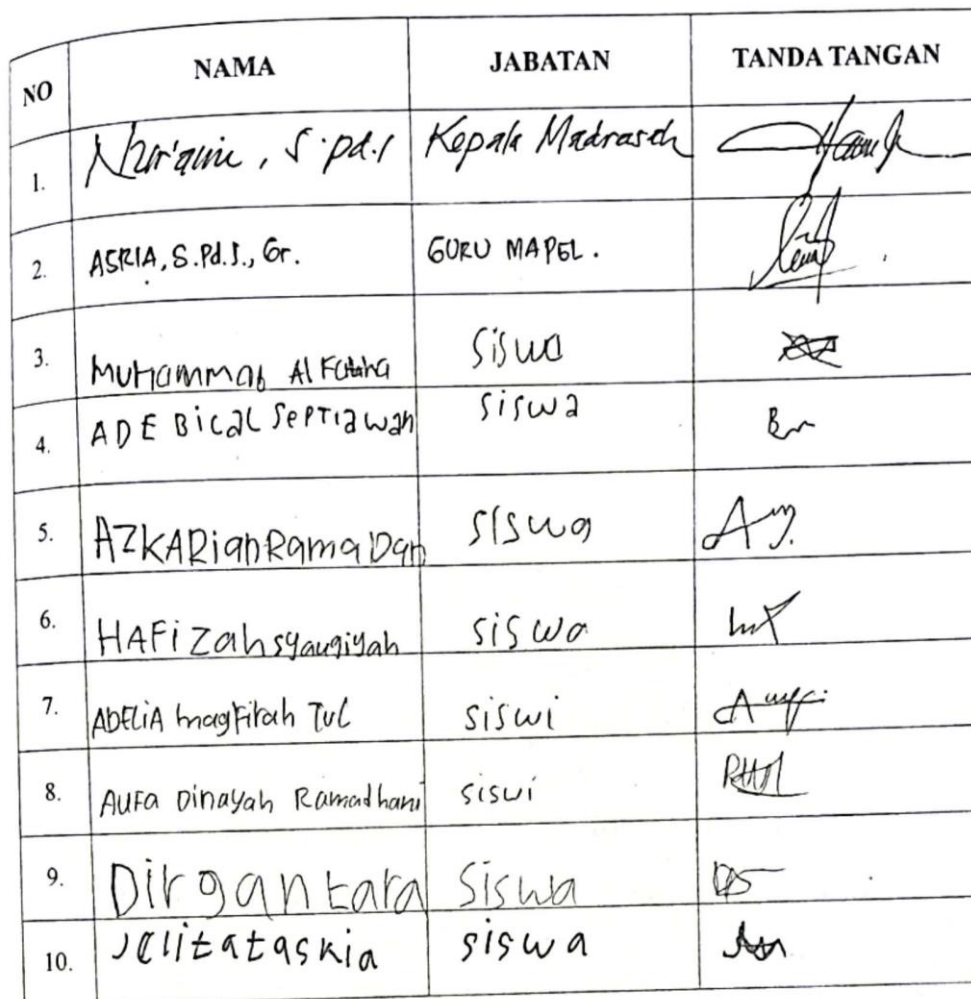 NO NAMA JABATAN TANDA TANGAN
1. Nur'aini, S.pd.I Kepala Madrasah
2. ASRIA, S.Pd.I., Gr. GURU MAPEL.
3. MuHammad Al Fatiha siswa
4. ADE Bical SepTiawan siswa
5. AZKARianRamaDan siswa
6. HAFiZahsyauqiyah siswa
7. ADELiA magFirah Tul siswi
8. AUFa Dinayah Ramadhani siswi
9. Dirgantara Siswa
10. Jelitataskia siswa